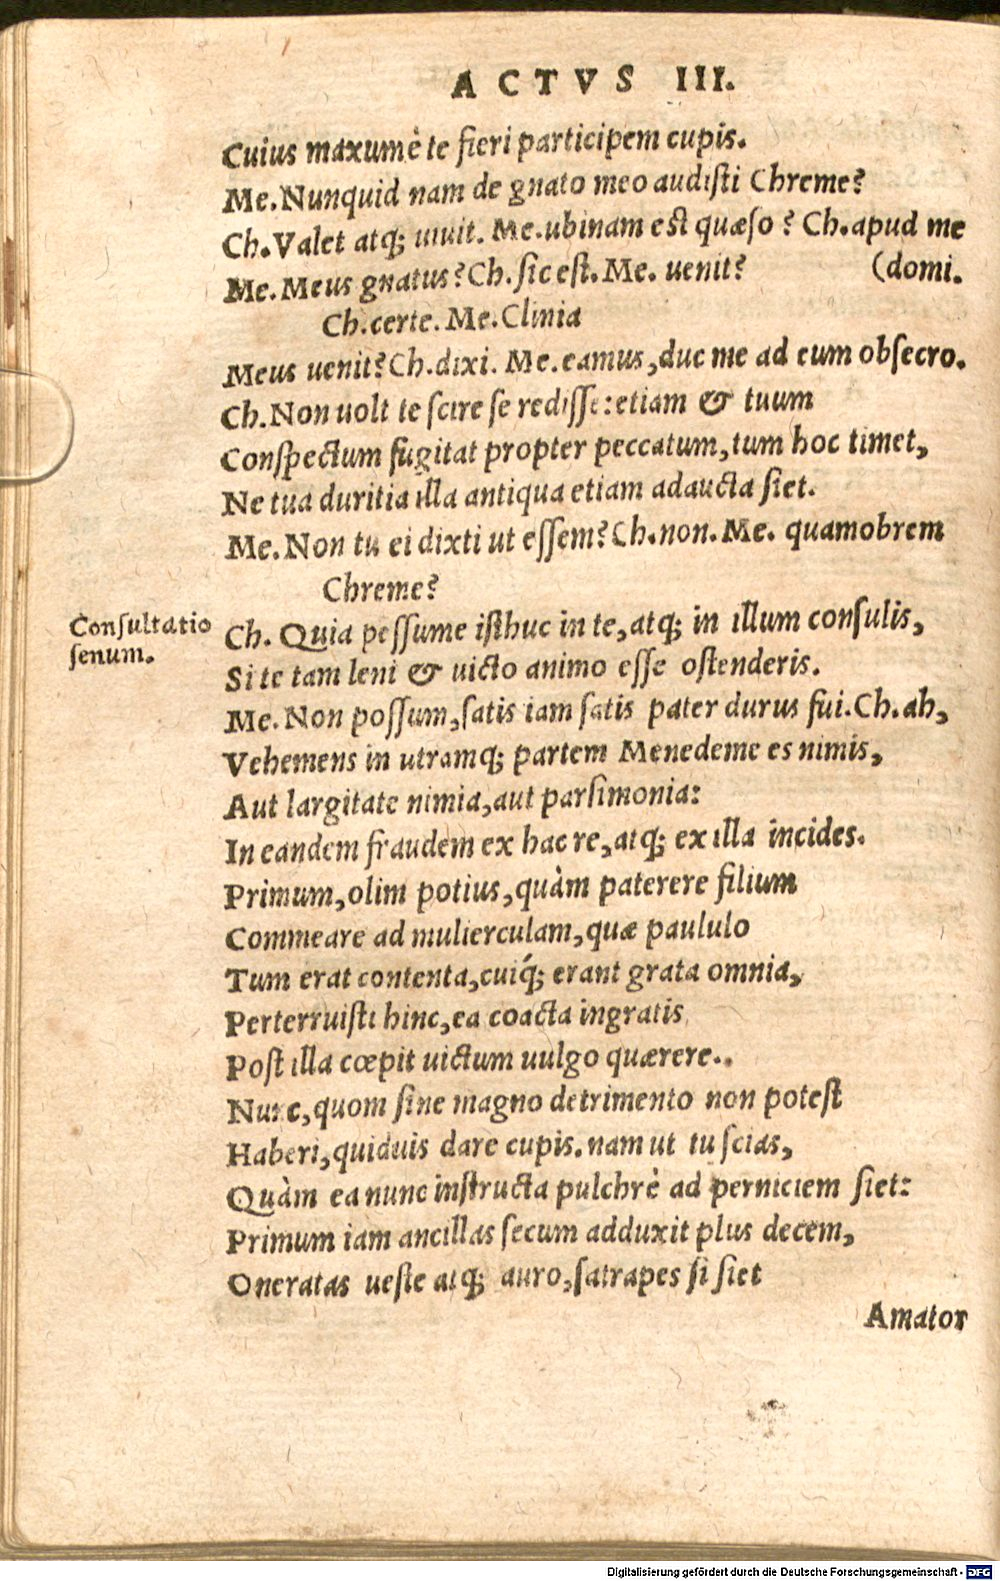 ACTVS III.
Cuius maxumè te fieri participem cupis.
Me. Nunquid nam de gnato meo audisti Chreme?
Ch. Valet atq; uiuit. Me. ubinam est quæso? Ch. apud me
Me. Meus gnatus? Ch. sic est. Me. uenit? (domi.
Ch. certe. Me. Clinia
Meus uenit? Ch. dixi. Me. eamus, duc me ad eum obsecro.
Ch. Non uolt te scire se redisse: etiam & tuum
Conspectum fugitat propter peccatum, tum hoc timet,
Ne tua duritia illa antiqua etiam adaucta siet.
Me. Non tu ei dixti ut essem? Ch. non. Me. quamobrem
Chreme?
Consultatio
senum.
Ch. Quia pessume isthuc in te, atq; in illum consulis,
Si te tam leni & uicto animo esse ostenderis.
Me. Non possum, satis iam satis pater durus fui. Ch. ah,
Vehemens in utramq; partem Menedeme es nimis,
Aut largitate nimia, aut parsimonia:
In eandem fraudem ex hac re, atq; ex illa incides.
Primum, olim potius, quàm paterere filium
Commeare ad mulierculam, quæ paululo
Tum erat contenta, cuiq́; erant grata omnia,
Perterruisti hinc, ea coacta ingratis
Post illa cœpit uictum uulgo quærere..
Nunc, quom sine magno detrimento non potest
Haberi, quiduis dare cupis. nam ut tu scias,
Quàm ea nunc instructa pulchrè ad perniciem siet:
Primum iam ancillas secum adduxit plus decem,
Oneratas ueste atq; auro, satrapes si siet
Amator
Digitalisierung gefördert durch die Deutsche Forschungsgemeinschaft - DFG